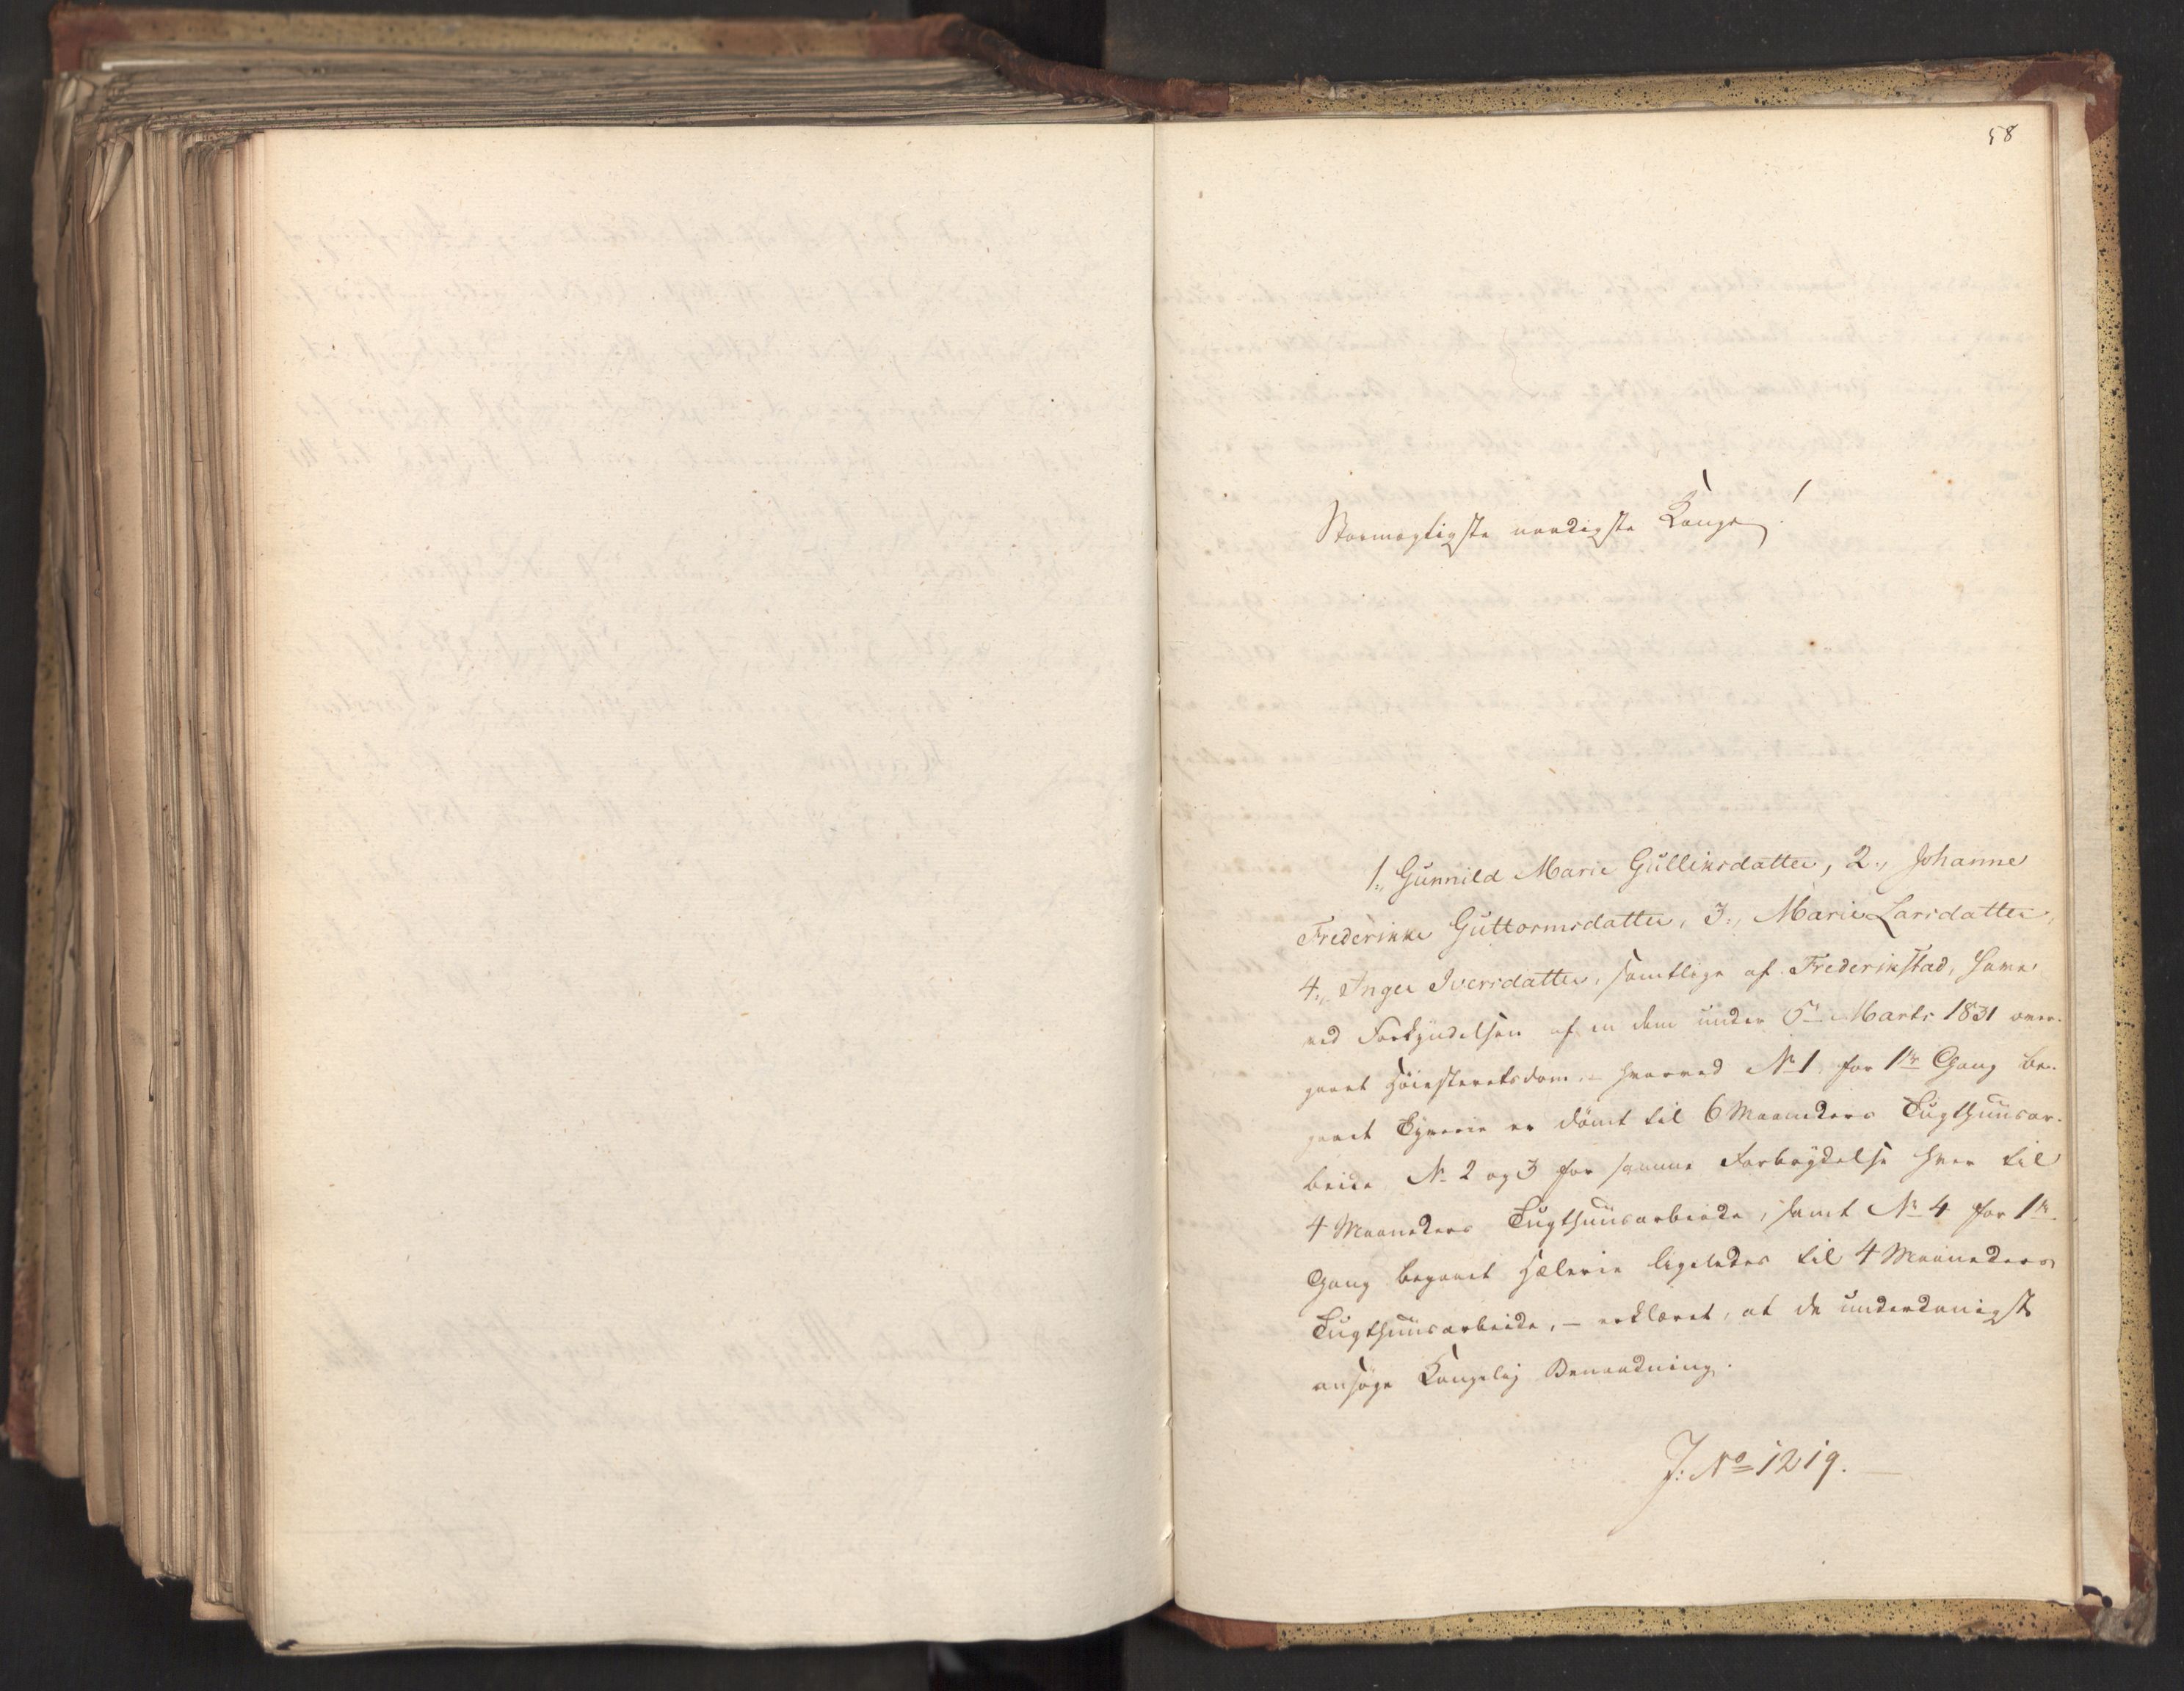 58
Stormægtigste naadigste Konge!
1., Gunnild Marie Gulliksdatter, 2., Johanne
Frederikke Guttormsdatter, 3., Marie Larsdatter,
4., Inger Iversdatter, samtlige af Frederikstad, have
ved Forkyndelsen af en dem under 5te Marts 1831 over-
gaaet Höiesteretsdom, – hvorved No 1 for 1ste Gang be-
gaaet Tyverie er dömt til 6 Maaneders Tugthuusar-
beide No 2 og 3 for samme Forbrydelse hver til
4 Maaneders Tugthuusarbeide, samt No 4 for 1ste
Gang begaaet Hælerie ligeledes til 4 Maaneders
Tugthuusarbeide, – erklæret, at de underdanigst
ansöge Kongelig Benaadning.
J: No 1219. —